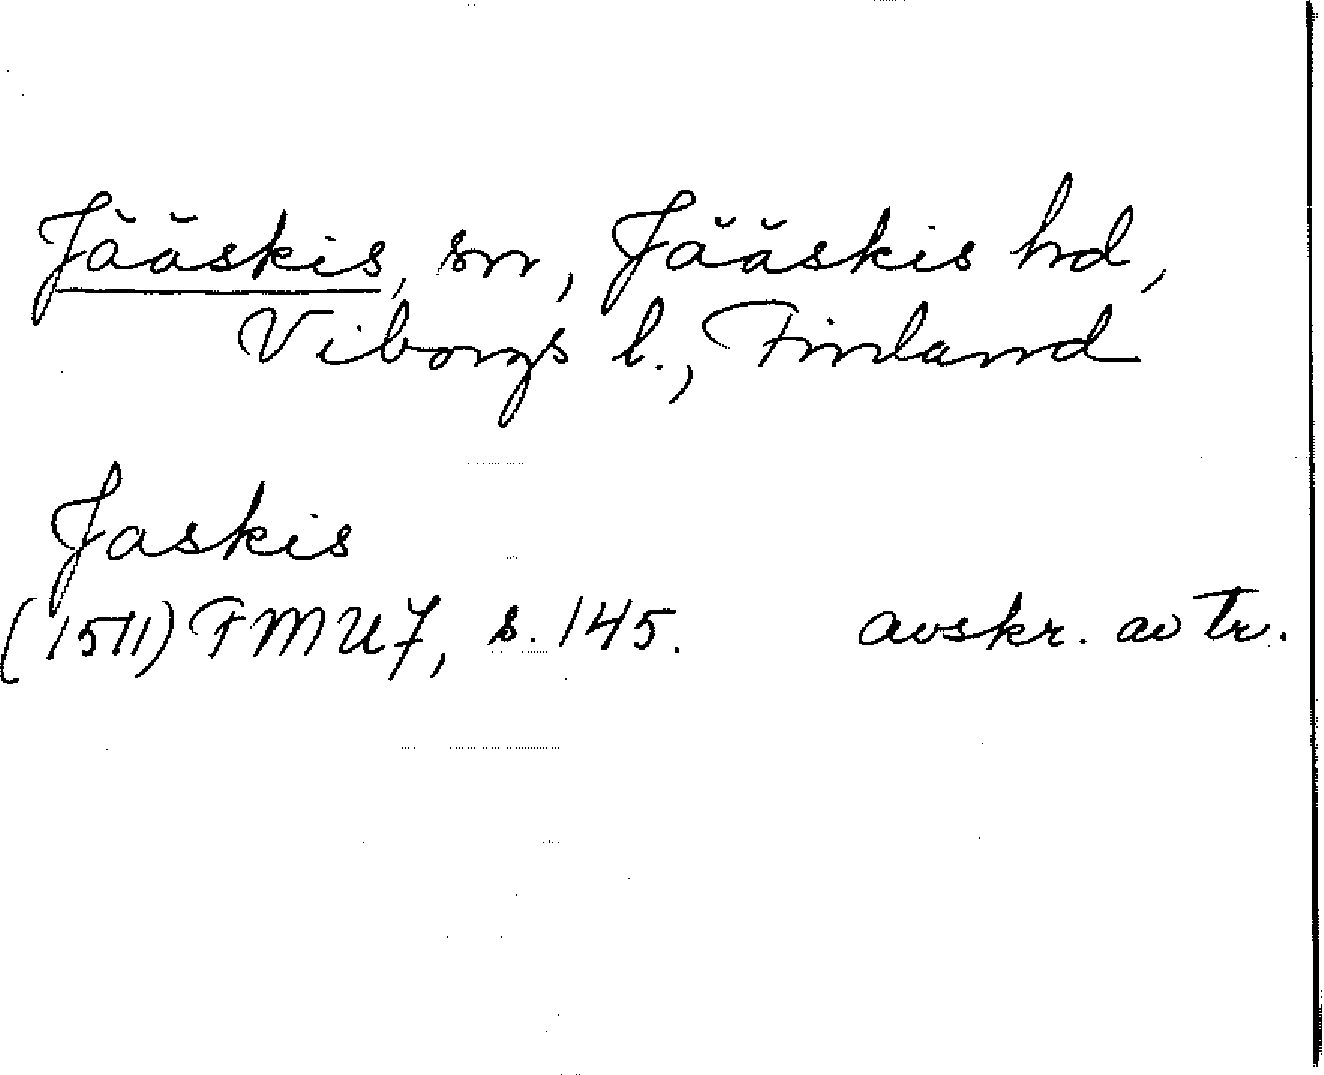 Jääskis, sn, Jääskis hd,
Viborgs l., Finland
Jaskis
(1511) FMU 7, s. 145. avskr. av tr.